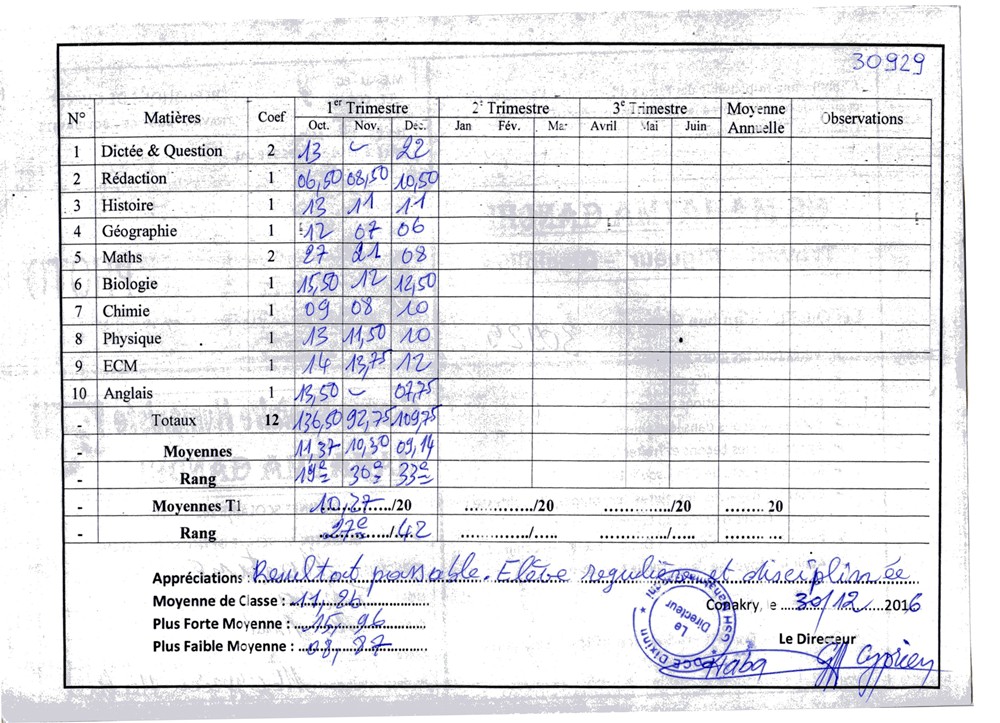 30929
N° Matières Coef 1er Trimestre 2e Trimestre 3e Trimestre Moyenne Annuelle Observations
Oct. Nov. Dec. Jan Fév. Mar Avril Mai Juin
1 Dictée & Question 2 13 ~ 22
2 Rédaction 1 06,50 08,50 10,50
3 Histoire 1 13 11 11
4 Géographie 1 12 07 06
5 Maths 2 27 21 08
6 Biologie 1 15,50 12 12,50
7 Chimie 1 09 08 10
8 Physique 1 13 11,50 10
9 ECM 1 14 13,75 12
10 Anglais 1 13,50 ~ 07,75
- Totaux 12 136,50 92,75 109,75
- Moyennes 11,37 10,30 09,14
- Rang 19e 30e 33e
- Moyennes T1 10,27/20 ............./20 ............./20 ........ 20
- Rang 27e/42 ............./..... ............./..... .............
Appréciations : Resultat passable. Elève regulière et disciplinée
Moyenne de Classe : 11,26
Conakry, le 30/12 2016
Plus Forte Moyenne : 15,96
Le Directeur
Plus Faible Moyenne : 08,27
Le Directeur
DCE Dixinn
Haba Cyprien